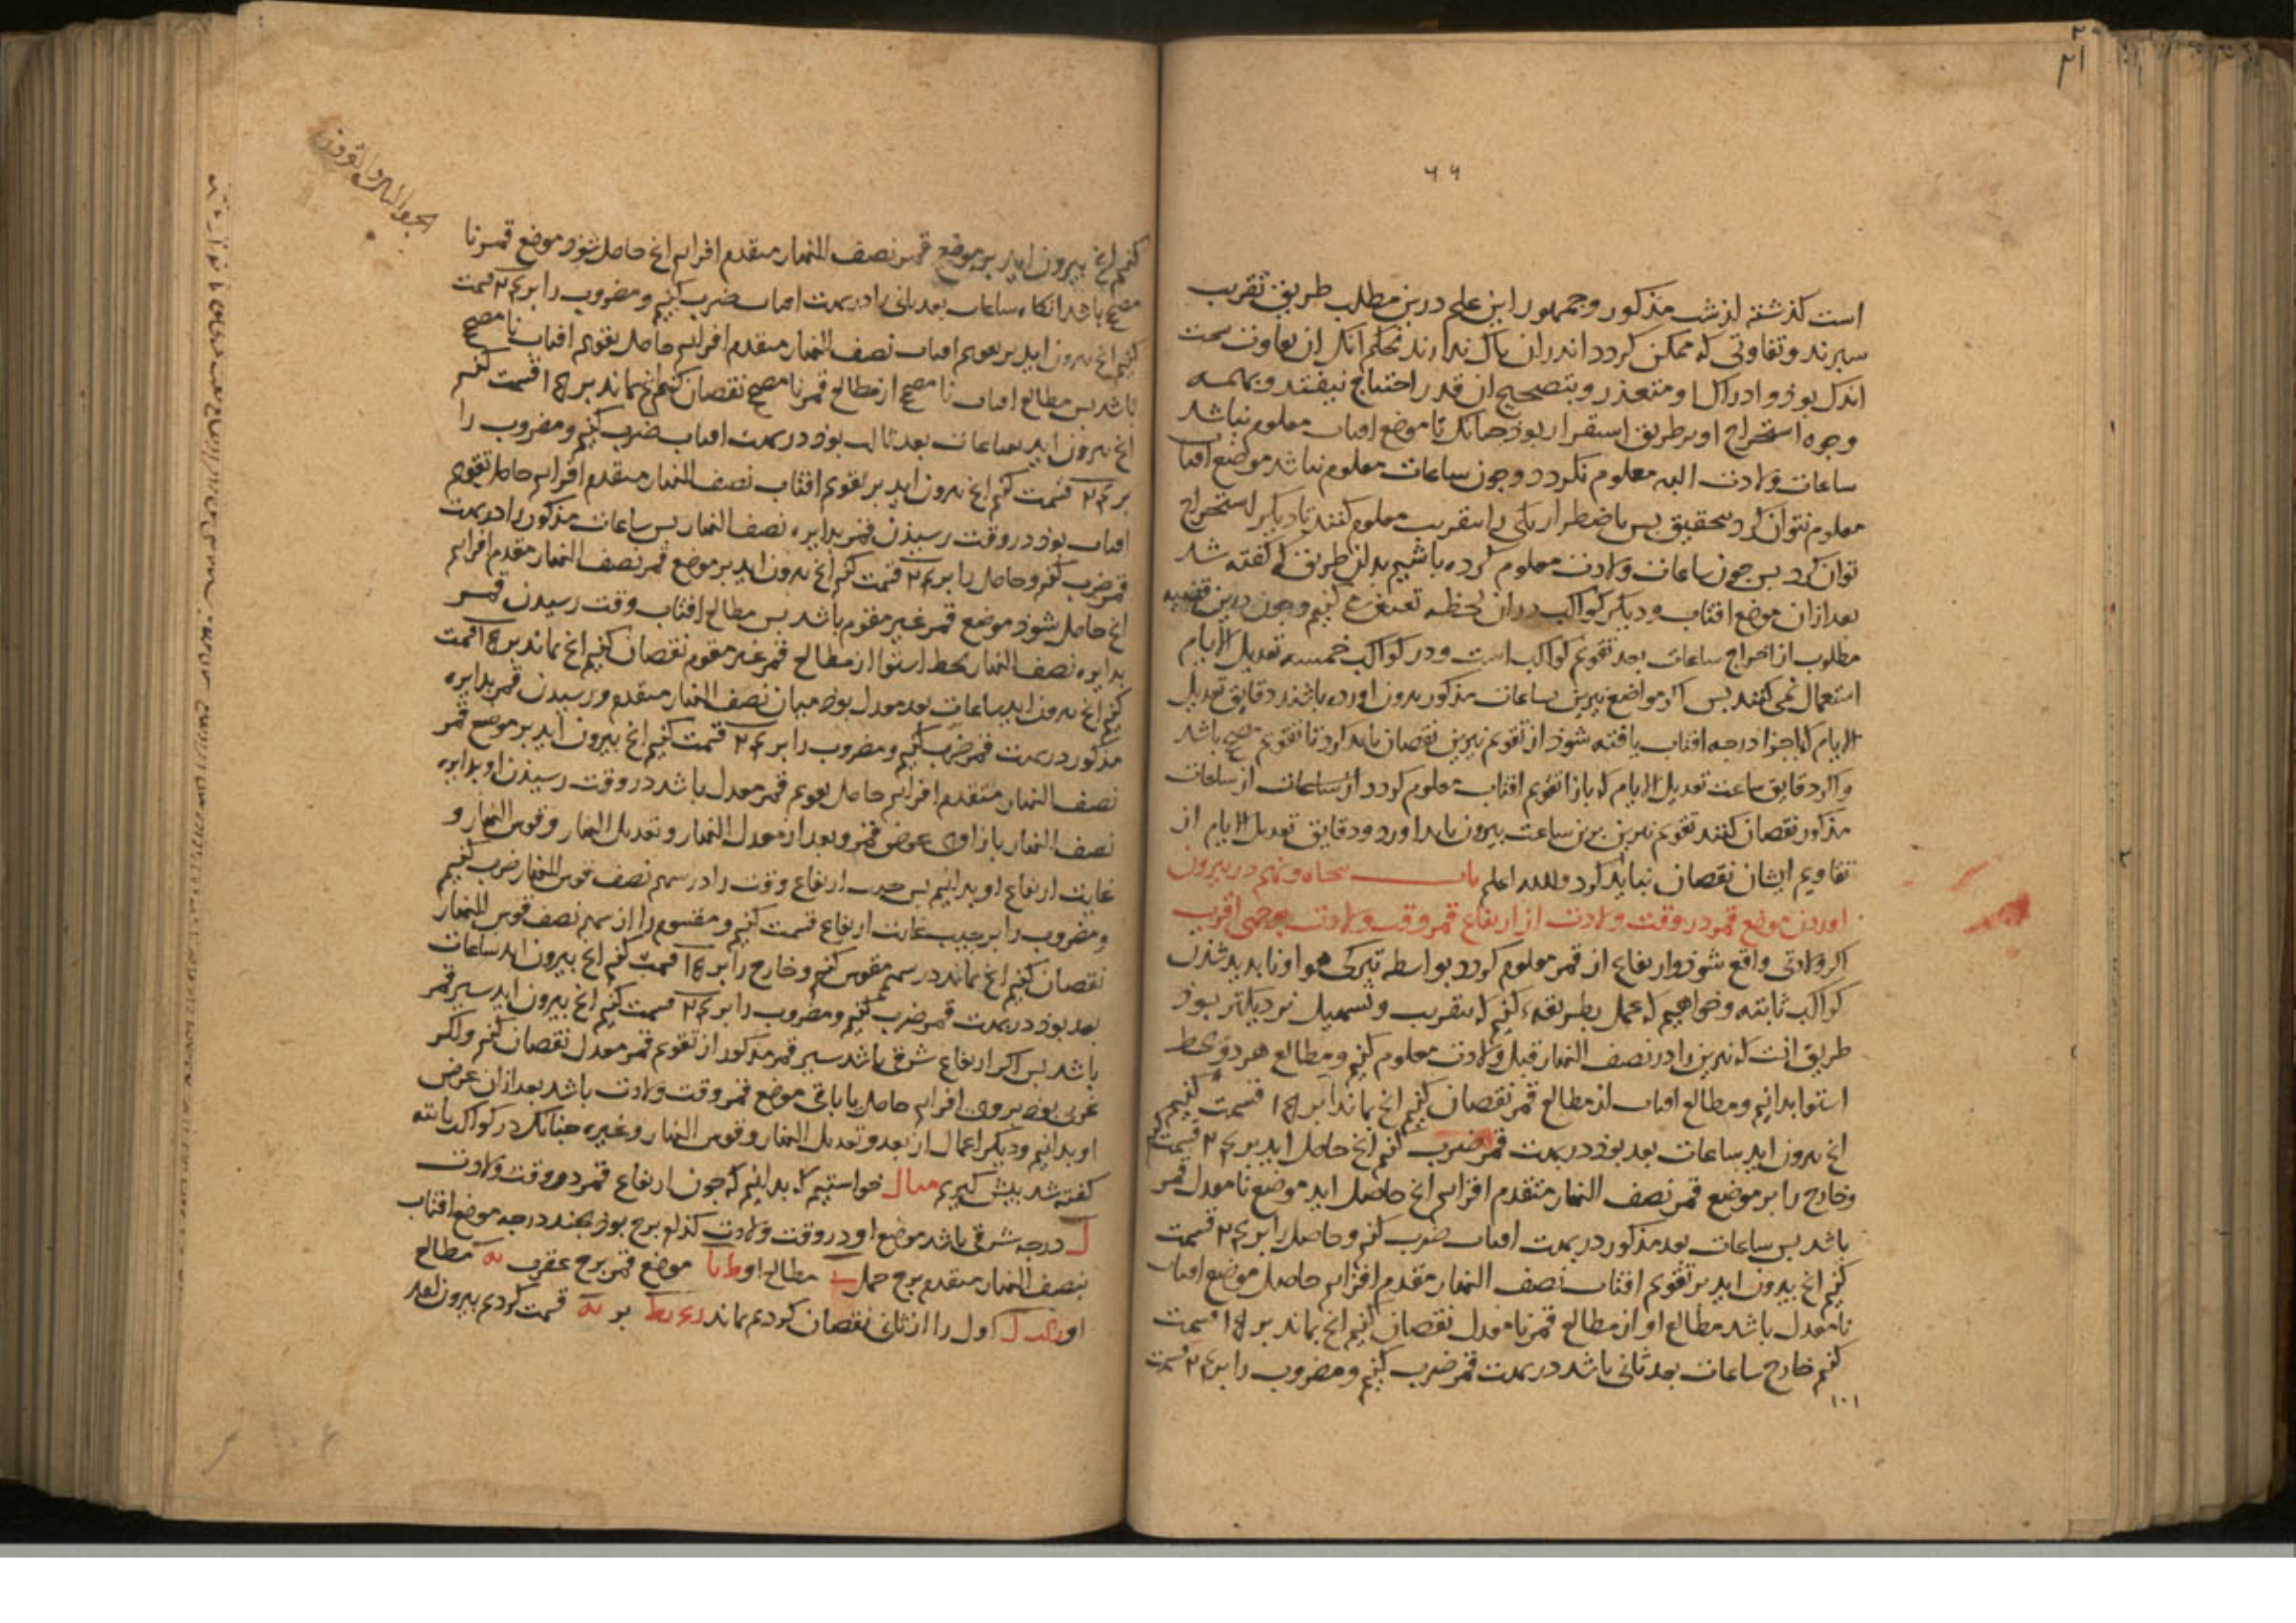 ۶۶
است گذشته از شب مذکور و جمهور این علم درین مطلب طریق تقریب
سپرند و تفاوتی که ممکن گردد اندران باک ندارند بحکم آنک ان تفاوت سخت
اندک بوذ و ادراک او متعذر و بتصحیح ان قدر احتیاج نیفتد و
وجوه استخراج او بر طریق استقرار بوذ جنانک تا موضع افتاب معلوم نباشد
ساعات ولادت البته معلوم نکردد و جون ساعات معلوم نباشد موضع افتاب
معلوم نتوان کرد بتحقیق بس باضطرار یکی را بتقریب معلوم کنند تا دیکر استخراج
توان کرد بس جون ساعات ولادت معلوم کرده باشیم بدان طریق که گفته شد
بعد ازان موضع افتاب و دیکر کواکب دران لحظه کنیم و جون درین قضیه
مطلوب از اخراج ساعات بعد تقویم کواکب است و در کواکب خمسه تعدیل الایام
استعمال نمی کنند بس اکر مواضع نیرین بساعات مذکور بیرون اورده باشند دقایق تعدیل
الایام که باجزا درجه افتاب یافته شوذ از تقویم نیرین نقصان باید کرد تا تقویم مصحح باشد
و اکر دقایق ساعت تعدیل الایام که بازا تقویم افتاب معلوم کردد از ساعات
مذکور نقصان کنند تقویم نیرین برین ساعت بیرون باید اورد و دقایق تعدیل الایام از
تقاویم ایشان نقصان نباید کرد والله اعلم باب بنجاه و نهم در بیرون
اوردن موضع قمر در وقت ولادت از ارتفاع قمر وقت ولادت بوجهی اقرب
اکر ولادتی واقع شوذ و ارتفاع از قمر معلوم کردد بواسطه تیرکی هوا و نابدید شدن
کواکب ثابته و خواهیم که عمل بطریقه کنیم که بتقریب و تسهیل نزدیکتر بوذ
طریق انست که نیرین را در نصف النهار قبل ولادت معلوم کنیم و مطالع هر دو بخط
استوا بدانیم و مطالع افتاب از مطالع قمر نقصان کنیم انج بماند بر ۱۵ قسمت کنیم
انج بیرون اید ساعات بعد بوذ در بهت قمر ضرب کنیم انج حاصل اید بر ۲۴ قسمت کنیم
و خارج را بر موضع قمر نصف النهار متقدم افزایم انج حاصل اید موضع نامعدل قمر
باشد بس ساعات بعد مذکور در بهت افتاب ضرب کنیم و حاصل را بر ۲۴ قسمت
کنیم انج بیرون اید بر تقویم افتاب نصف النهار مقدم افزایم حاصل موضع افتاب
نامعدل باشد مطالع او از مطالع قمر نامعدل نقصان کنیم انج بماند بر ۱۵ قسمت
کنیم خارج ساعات بعد ثانی باشد در بهت قمر ضرب کنیم و مضروب را بر ۲۴ قسمت
۱۰۱
کنیم انج بیرون اید بر موضع قمر نصف النهار متقدم افزایم انج حاصل شوذ موضع قمر نا
مصحح باشد انکاه ساعات بعد ثانی را در بهت افتاب ضرب کنیم و مضروب را بر ۲۴ قسمت
کنیم انج بیرون اید بر تقویم افتاب نصف النهار متقدم افزایم حاصل تقویم افتاب نا مصحح
باشد بس مطالع افتاب نا مصحح از مطالع قمر نا مصحح نقصان کنیم انج بماند بر ۱۵ قسمت کنیم
انج بیرون اید ساعات بعد ثالث بوذ در بهت افتاب ضرب کنیم و مضروب را
بر ۲۴ قسمت کنیم انج بیرون اید بر تقویم افتاب نصف النهار متقدم افزایم حاصل تقویم
افتاب بوذ در وقت رسیذن قمر بدایره نصف النهار بس ساعات مذکور را در بهت
قمر ضرب کنیم و حاصل را بر ۲۴ قسمت کنیم انج بیرون اید بر موضع قمر نصف النهار مقدم افزایم
انج حاصل شوذ موضع قمر غیر مقوم باشد بس مطالع افتاب وقت رسیدن قمر
بدایره نصف النهار بخط استوا از مطالع قمر غیر مقوم نقصان کنیم انج بماند بر ۱۵ قسمت
کنیم انج بیرون اید ساعات بعد معدل بوذ میان نصف النهار متقدم و رسیدن قمر بدایره
مذکور در بهت قمر ضرب کنیم و مضروب را بر ۲۴ قسمت کنیم انج بیرون اید بر موضع قمر
نصف النهار متقدم افزایم حاصل تقویم قمر معدل باشد در وقت رسیذن او بدایره
نصف النهار بازاء وی عرض قمر و بعد از معدل النهار و تعدیل النهار و قوس النهار و
غایت ارتفاع او بدانیم بس جیب ارتفاع وقت را در سهم نصف قوس النهار ضرب کنیم
و مضروب را بر جیب غایت ارتفاع قسمت کنیم و مقسوم را از سهم نصف قوس النهار
نقصان کنیم انج بماند در سهم مقوس کنیم و خارج را بر ۱۵ قسمت کنیم انج بیرون اید ساعات
بعد بوذ در بهت قمر ضرب کنیم و مضروب را بر ۲۴ قسمت کنیم انج بیرون اید سیر قمر
باشد بس اکر ارتفاع شرقی باشد سیر قمر مذکور از تقویم قمر معدل نقصان کنیم و اکر
غربی بوذ بروی افزایم حاصل یا باقی موضع قمر وقت ولادت باشد بعد ازان عرض
او بدانیم و دیکر اعمال از بعد و تعدیل النهار و قوس النهار و غیره جنانک در کواکب ثابته
کفته شد بیش کیریم مثال خواستیم که بدانیم که جون ارتفاع قمر در وقت ولادت
ل درجه شرقی باشد موضع او در وقت ولادت کدام برج بوذ بجند درجه موضع افتاب
بنصف النهار متقدم برج حمل مطالع او موضع قمر برج عقرب مطالع
او اول را از ثانی نقصان کردیم بماند بر یه قسمت کردیم بیرون بعد